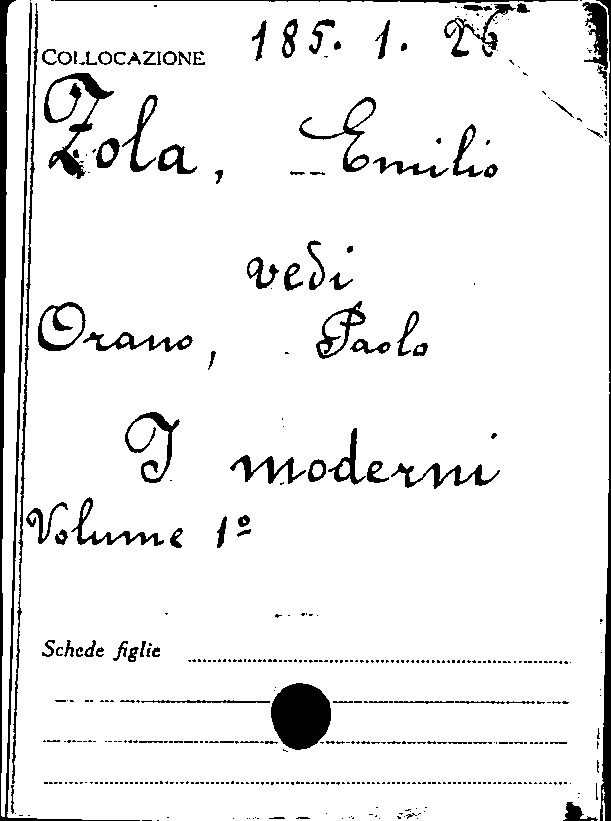 COLLOCAZIONE 185. 1. 26
Zola, Emilio
vedi
Orano, Paolo
I moderni
Volume 1º
Schede figlie